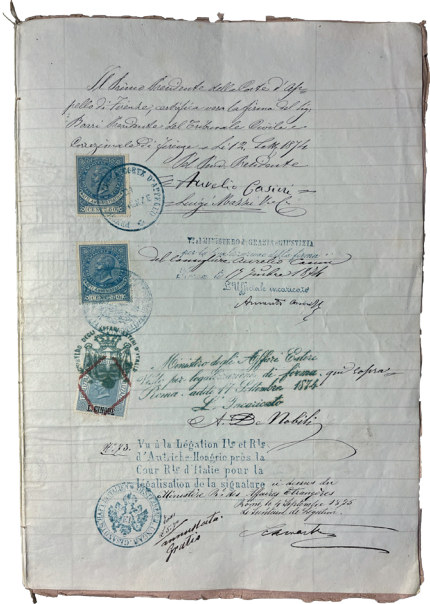 Il Primo Presidente della Corte d'Ap-
pello di Firenze, certifica vera la firma del Sig.
Presidente del Tribunale Civile e
Correzionale di Firenze - li 12 1874
Pel Primo Presidente
Aurelio
Luigi
CORTE D'APPELLO
MINISTERO DI GRAZIA E GIUSTIZIA
per la della firma
del Consigliere Aurelio
Roma 17 7mbre 1874
L'Ufficiale incaricato
Ministero degli Affari Esteri
Visto per legalizzazione di firma qui sopra
Roma, addì 17 Settembre 1874
L'Incaricato
A. De Nobili
Vu à la Légation Ile et Rle
d'Autriche-Hongrie près la
Cour Rle d'Italie pour la
légalisation de la signature ci dessus du
Ministère Rl des Affaires Etrangères
Rome, le 9 Septembre 1875
Le Secrétaire de Légation
Gratis